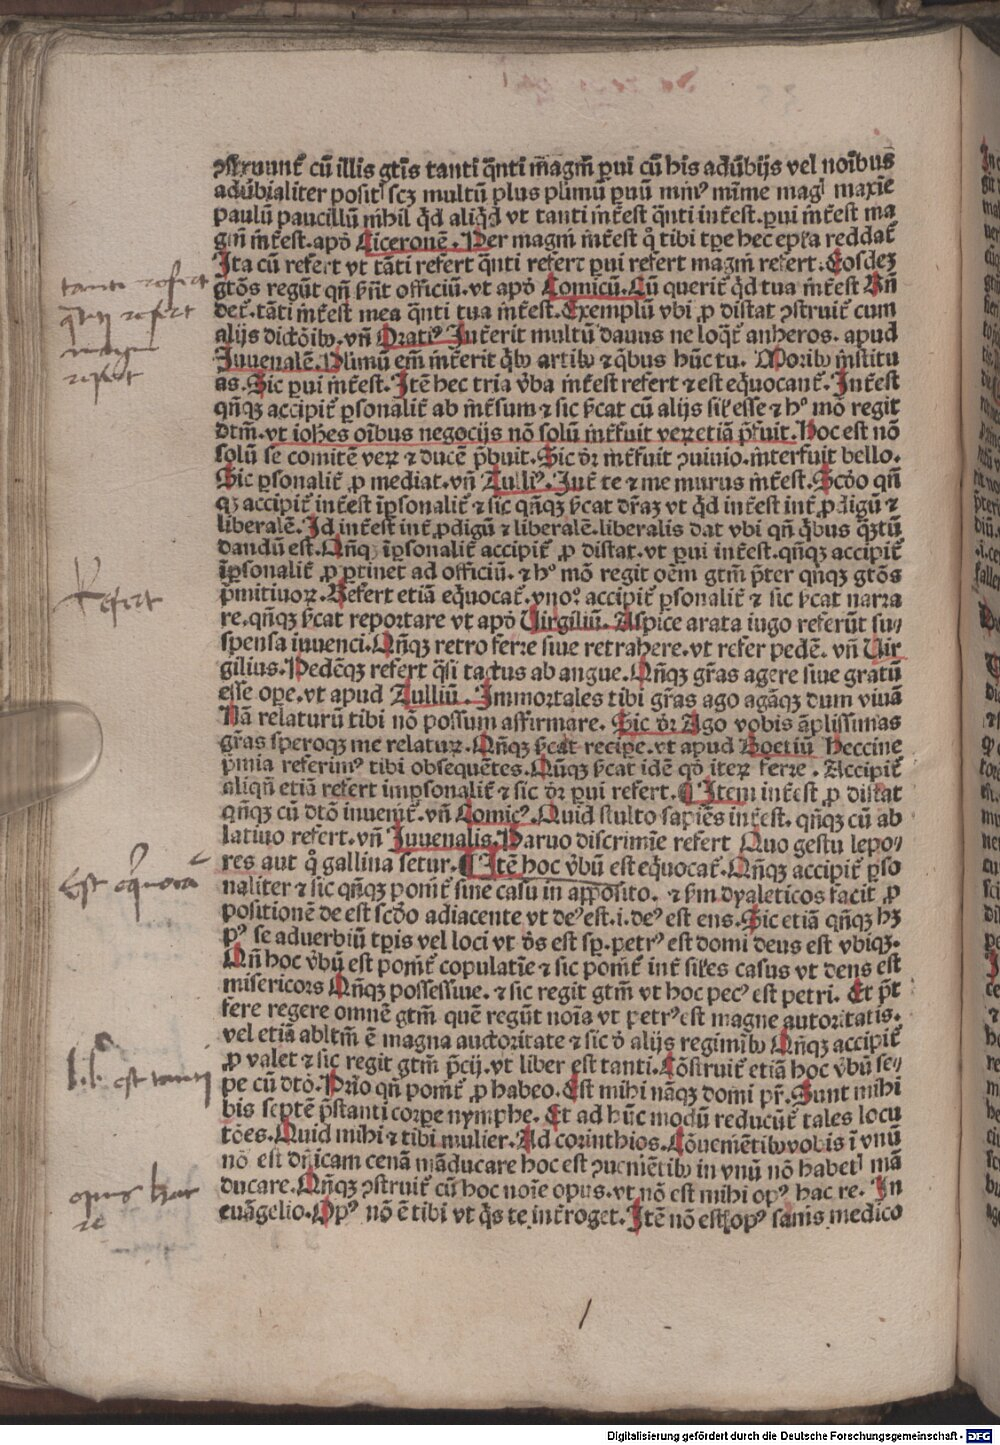 ꝯſtruunt̄ cū illis gtīs tanti q̄nti m̄agm̄ ꝑui cū his adūbijs vel noībus
adūbialiter poſitꝭ ſcꝫ multū plus plimū ꝑuū minꝰ mīme magꝭ maxīe
paulū paucillū nihil qd̄ aliqd̄ vt tanti int̄eſt q̄nti int̄eſt. ꝑui int̄eſt ma
gni int̄eſt. apḋ Ciceronē. Per magni int̄eſt ꝙ tibi tꝑe hec epl̄a reddat̄
Ita cū refert vt tāti refert q̄nti refert ꝑui refert magni refert. Eoſdeꝫ
gtōs regūt qn̄ hn̄t officiū. vt apḋ Comicū. Cū querit̄ qd̄ tua int̄eſt Rn̄
det̄. tāti int̄eſt mea q̄nti tua int̄eſt. Exemplū vbi ꝓ diſtat ꝯſtruit̄ cum
alijs dictōibꝰ. vn̄ Oratiꝰ Int̄erit multū dauus ne loqt̄ an heros. apud
Juuenalē. Plimū em̄ int̄erit qͥbꝰ artibꝰ ⁊ qͥbus hūc tu. Moribꝰ inſtitu
as. Sic ꝑui int̄eſt. Itē hec tria v̄ba int̄eſt refert ⁊ eſt eq̄uocant̄. Int̄eſt
qn̄qꝫ accipit̄ ꝑſonalit̄ ab int̄ſum ⁊ ſic ſ̄cat cū alijs ſil̄ eſſe ⁊ hº mō regit
dtm̄. vt ioh̄es oībus negocijs nō ſolū int̄fuit veꝝ etiā p̄fuit. Hoc eſt nō
ſolū ſe comitē veꝝ ⁊ ducē p̄buit. Sic dr̄ int̄fuit ꝯuiuio. interfuit bello.
Sic ꝑſonalit̄ ꝓ mediat. vn̄ Tulliꝰ. Int̄ te ⁊ me murus int̄eſt. Scḋo qn̄
qꝫ accipit̄ int̄eſt īꝑſonalit̄ ⁊ ſic qn̄qꝫ ſ̄cat dr̄aꝫ vt qd̄ int̄eſt int̄ ꝓdigū ⁊
liberalē. Id int̄eſt int̄ ꝓdigū ⁊ liberalē. liberalis dat vbi qn̄ qͥbus qͣꝫtū
dandū eſt. Qn̄qꝫ īꝑſonalit̄ accipit̄ ꝓ diſtat. vt ꝑui int̄eſt. qn̄qꝫ accipit̄
īꝑſonalit̄ ꝓ ꝑtinet ad officiū. ⁊ hº mō regit oēm gtm̄ p̄ter qn̄qꝫ gtōs
p̄mitiuoꝝ. Refert etiā eq̄uocat̄. vnoº accipit̄ ꝑſonalit̄ ⁊ ſic ſ̄cat narra
re. qn̄qꝫ ſ̄cat reportare vt apḋ Uirgiliū. Aſpice arata iugo referūt ſu⸗
ſpenſa iuuenci. Qn̄qꝫ retro ferre ſiue retrahere. vt refer pedē. vn̄ Uir
gilius. Pedēqꝫ refert qͣſi tactus ab angue. Qn̄qꝫ gr̄as agere ſiue gratū
eſſe ope. vt apud Tulliū. Immortales tibi gr̄as ago agāqꝫ dum viuā
Nā relaturū tibi nō poſſum affirmare. Sic dr̄ Ago vobis āpliſſimas
gr̄as ſperoqꝫ me relatuꝝ. Qn̄qꝫ ſ̄cat recipe. vt apud Boetiū Heccine
p̄mia referimꝰ tibi obſequētes. Qn̄qꝫ ſ̄cat idē qḋ iteꝝ ferre. Accipit̄
aliqn̄ etiā refert imꝑſonalit̄ ⁊ ſic dr̄ ꝑui refert. ¶ Item int̄eſt ꝓ diſtat
qn̄qꝫ cū dtō inuenit̄. vn̄ Comicꝰ. Quid ſtulto ſapiēs int̄eſt. qn̄qꝫ cū ab
latiuo refert. vn̄ Juuenalis. Paruo diſcrimīe refert Quo geſtu lepo⸗
res aut q̊ gallina ſetur. ¶ Itē hoc v̄bū eſt eq̄uocat̄. Qn̄qꝫ accipit̄ ꝑſo
naliter ⁊ ſic qn̄qꝫ ponit̄ ſine caſu in appoſito. ⁊ ſm̄ dyaleticos facit ꝓ
poſitionē de eſt ſcḋo adiacente vt deꝰ eſt. i. deꝰ eſt ens. Sic etiā qn̄qꝫ hꝫ
pꝰ ſe aduerbiū tꝑis vel loci vt ds̄ eſt ſꝑ. petrꝰ eſt domi deus eſt vbiqꝫ.
Qn̄ hoc v̄bū eſt ponit̄ copulatīe ⁊ ſic ponit̄ int̄ ſil̄es caſus vt deus eſt
miſericors Qn̄qꝫ poſſeſſiue. ⁊ ſic regit gtm̄ vt hoc pecꝰ eſt petri. Et p̄t
fere regere omnē gtm̄ quē regūt noīa vt petrꝰ eſt magne autoritatis.
vel etiā abltm̄ ē magna auctoritate ⁊ ſic ḋ alijs regimībꝰ Qn̄qꝫ accipit̄
ꝓ valet ⁊ ſic regit gtm̄ p̄cij. vt liber eſt tanti. Cōſtruit̄ etiā hoc v̄bū ſe⸗
pe cū dtō. Prīo qn̄ ponit̄ ꝓ habeo. Eſt mihi nāqꝫ domi pr̄. Sunt mihi
bis ſeptē p̄ſtanti corꝑe nymphe. Et ad hūc modū reducūt̄ tales locu
tōes. Quid mihi ⁊ tibi mulier. Ad corinthios. Cōueniētibꝰ vobis ī vnū
nō eſt dn̄icam cenā māducare hoc eſt ꝯueniētibꝰ in vnū nō habetꝭ mā
ducare. Qn̄qꝫ ꝯſtruit̄ cū hoc noīe opus. vt nō eſt mihi opꝰ hac re. In
euāgelio. Opꝰ nō ē tibi vt qͥs te int̄roget. Itē nō eſt opꝰ ſanis medico
tanti refert
q̄nti refert
magni
refert
Refert
Est equoca
l.l. est tanti
opus hac
re
Digitalisierung gefördert durch die Deutsche Forschungsgemeinschaft - DFG